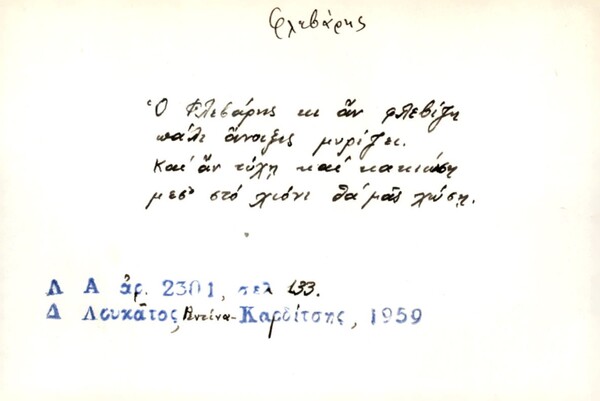 Φλεβάρης
Ὁ Φλεβάρης κι ἄν φλεβίζῃ
πάλι ἄνοιξις μυρίζει.
Καί ἄν τύχῃ καί κακιώσῃ
μεσ' στό χιόνι θά μᾶς χώσῃ.
Λ Α ἀρ. 2301, σελ 133.
Δ Λουκᾶτος, Ἀντίνα-Καρδίτσης, 1959